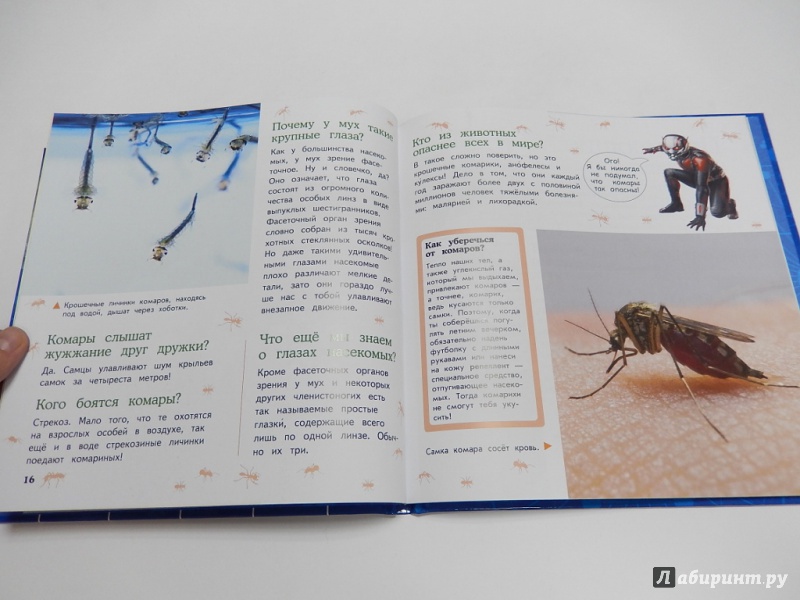 Крошечные личинки комаров, находясь
под водой, дышат через хоботки.
Комары слышат
жужжание друг дружки?
Да. Самцы улавливают шум крыльев
самок за четыреста метров!
Кого боятся комары?
Стрекоз. Мало того, что те охотятся
на взрослых особей в воздухе, так
ещё и в воде стрекозиные личинки
поедают комариных!
16
Почему у мух такие
крупные глаза?
Как у большинства насеко-
мых, у мух зрение фасе-
точное. Ну и словечко, да?
Оно означает, что глаза
состоят из огромного коли-
чества особых линз в виде
выпуклых шестигранников.
Фасеточный орган зрения
словно собран из тысяч кро-
хотных стеклянных осколков!
Но даже такими удивитель-
ными глазами насекомые
плохо различают мелкие де-
тали, зато они гораздо луч-
ше нас с тобой улавливают
внезапное движение.
Что ещё мы знаем
о глазах насекомых?
Кроме фасеточных органов
зрения у мух и некоторых
других членистоногих есть
так называемые простые
глазки, содержащие всего
лишь по одной линзе. Обыч-
но их три.
Кто из животных
опаснее всех в мире?
В такое сложно поверить, но это
крошечные комарики, анофелесы и
кулексы! Дело в том, что они каждый
год заражают более двух с половиной
миллионов человек тяжёлыми болезня-
ми: малярией и лихорадкой.
Ого!
Я бы никогда
не подумал,
что комары
так опасны!
Как уберечься
от комаров?
Тепло наших тел, а
также углекислый газ,
который мы выдыхаем,
привлекают комаров —
а точнее, комарих,
ведь кусаются только
самки. Поэтому, когда
ты соберёшься погу-
лять летним вечерком,
обязательно надень
футболку с длинными
рукавами или нанеси
на кожу репеллент —
специальное средство,
отпугивающее насеко-
мых. Тогда комарихи
не смогут тебя уку-
сить!
Самка комара сосёт кровь.
Лабиринт.ру